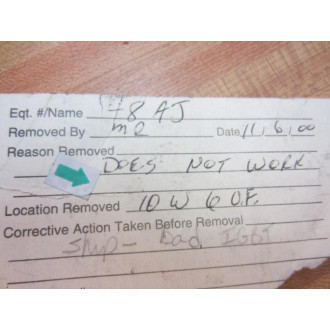 Eqt. #/Name 78 AJ
Removed By m2 Date 11,6,00
Reason Removed
DOES NOT WORK
Location Removed 10 W 6 O.F.
Corrective Action Taken Before Removal
Ship - Bad IGBT